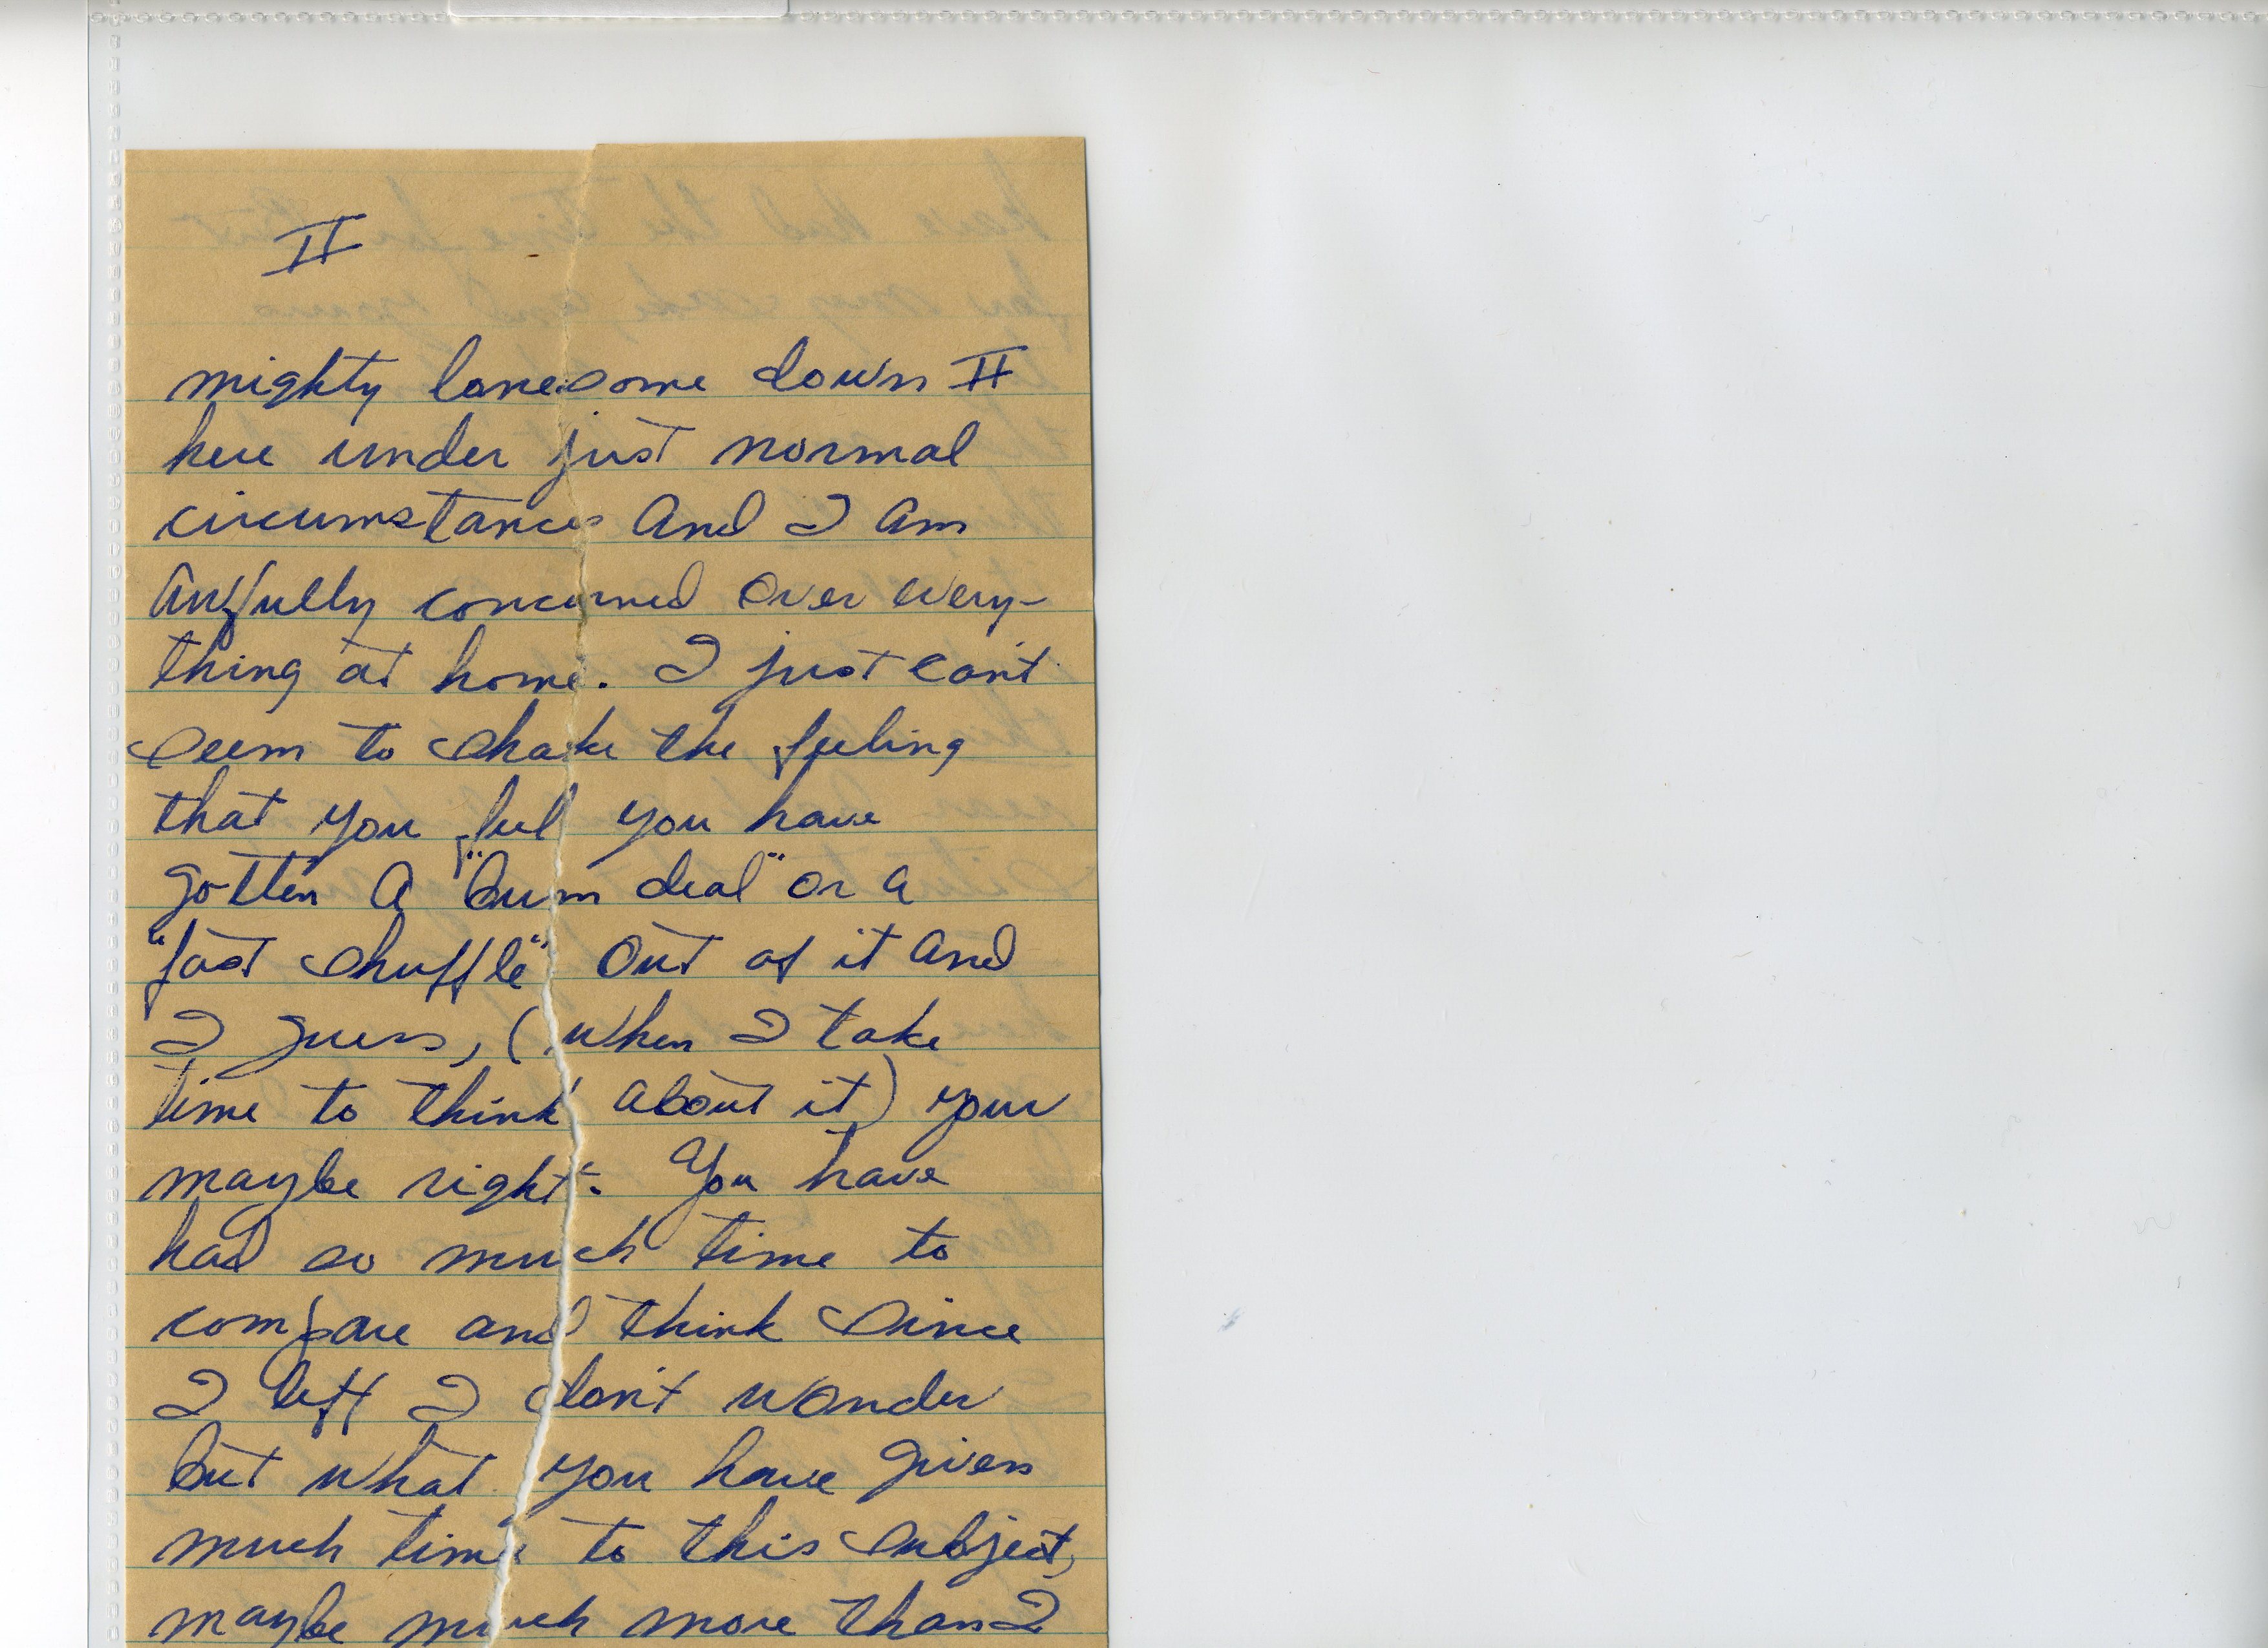 II
mighty lonesome down II
here under just normal
circumstances and I am
awfully concerned over every-
thing at home. I just can't
seem to shake the feeling
that you feel you have
gotten a "bum deal" or a
"fast shuffle" out of it and
I guess, (when I take
time to think about it) your
maybe right. You have
had so much time to
compare and think since
I left I don't wonder
but what you have given
much time to this subject,
maybe much more than I